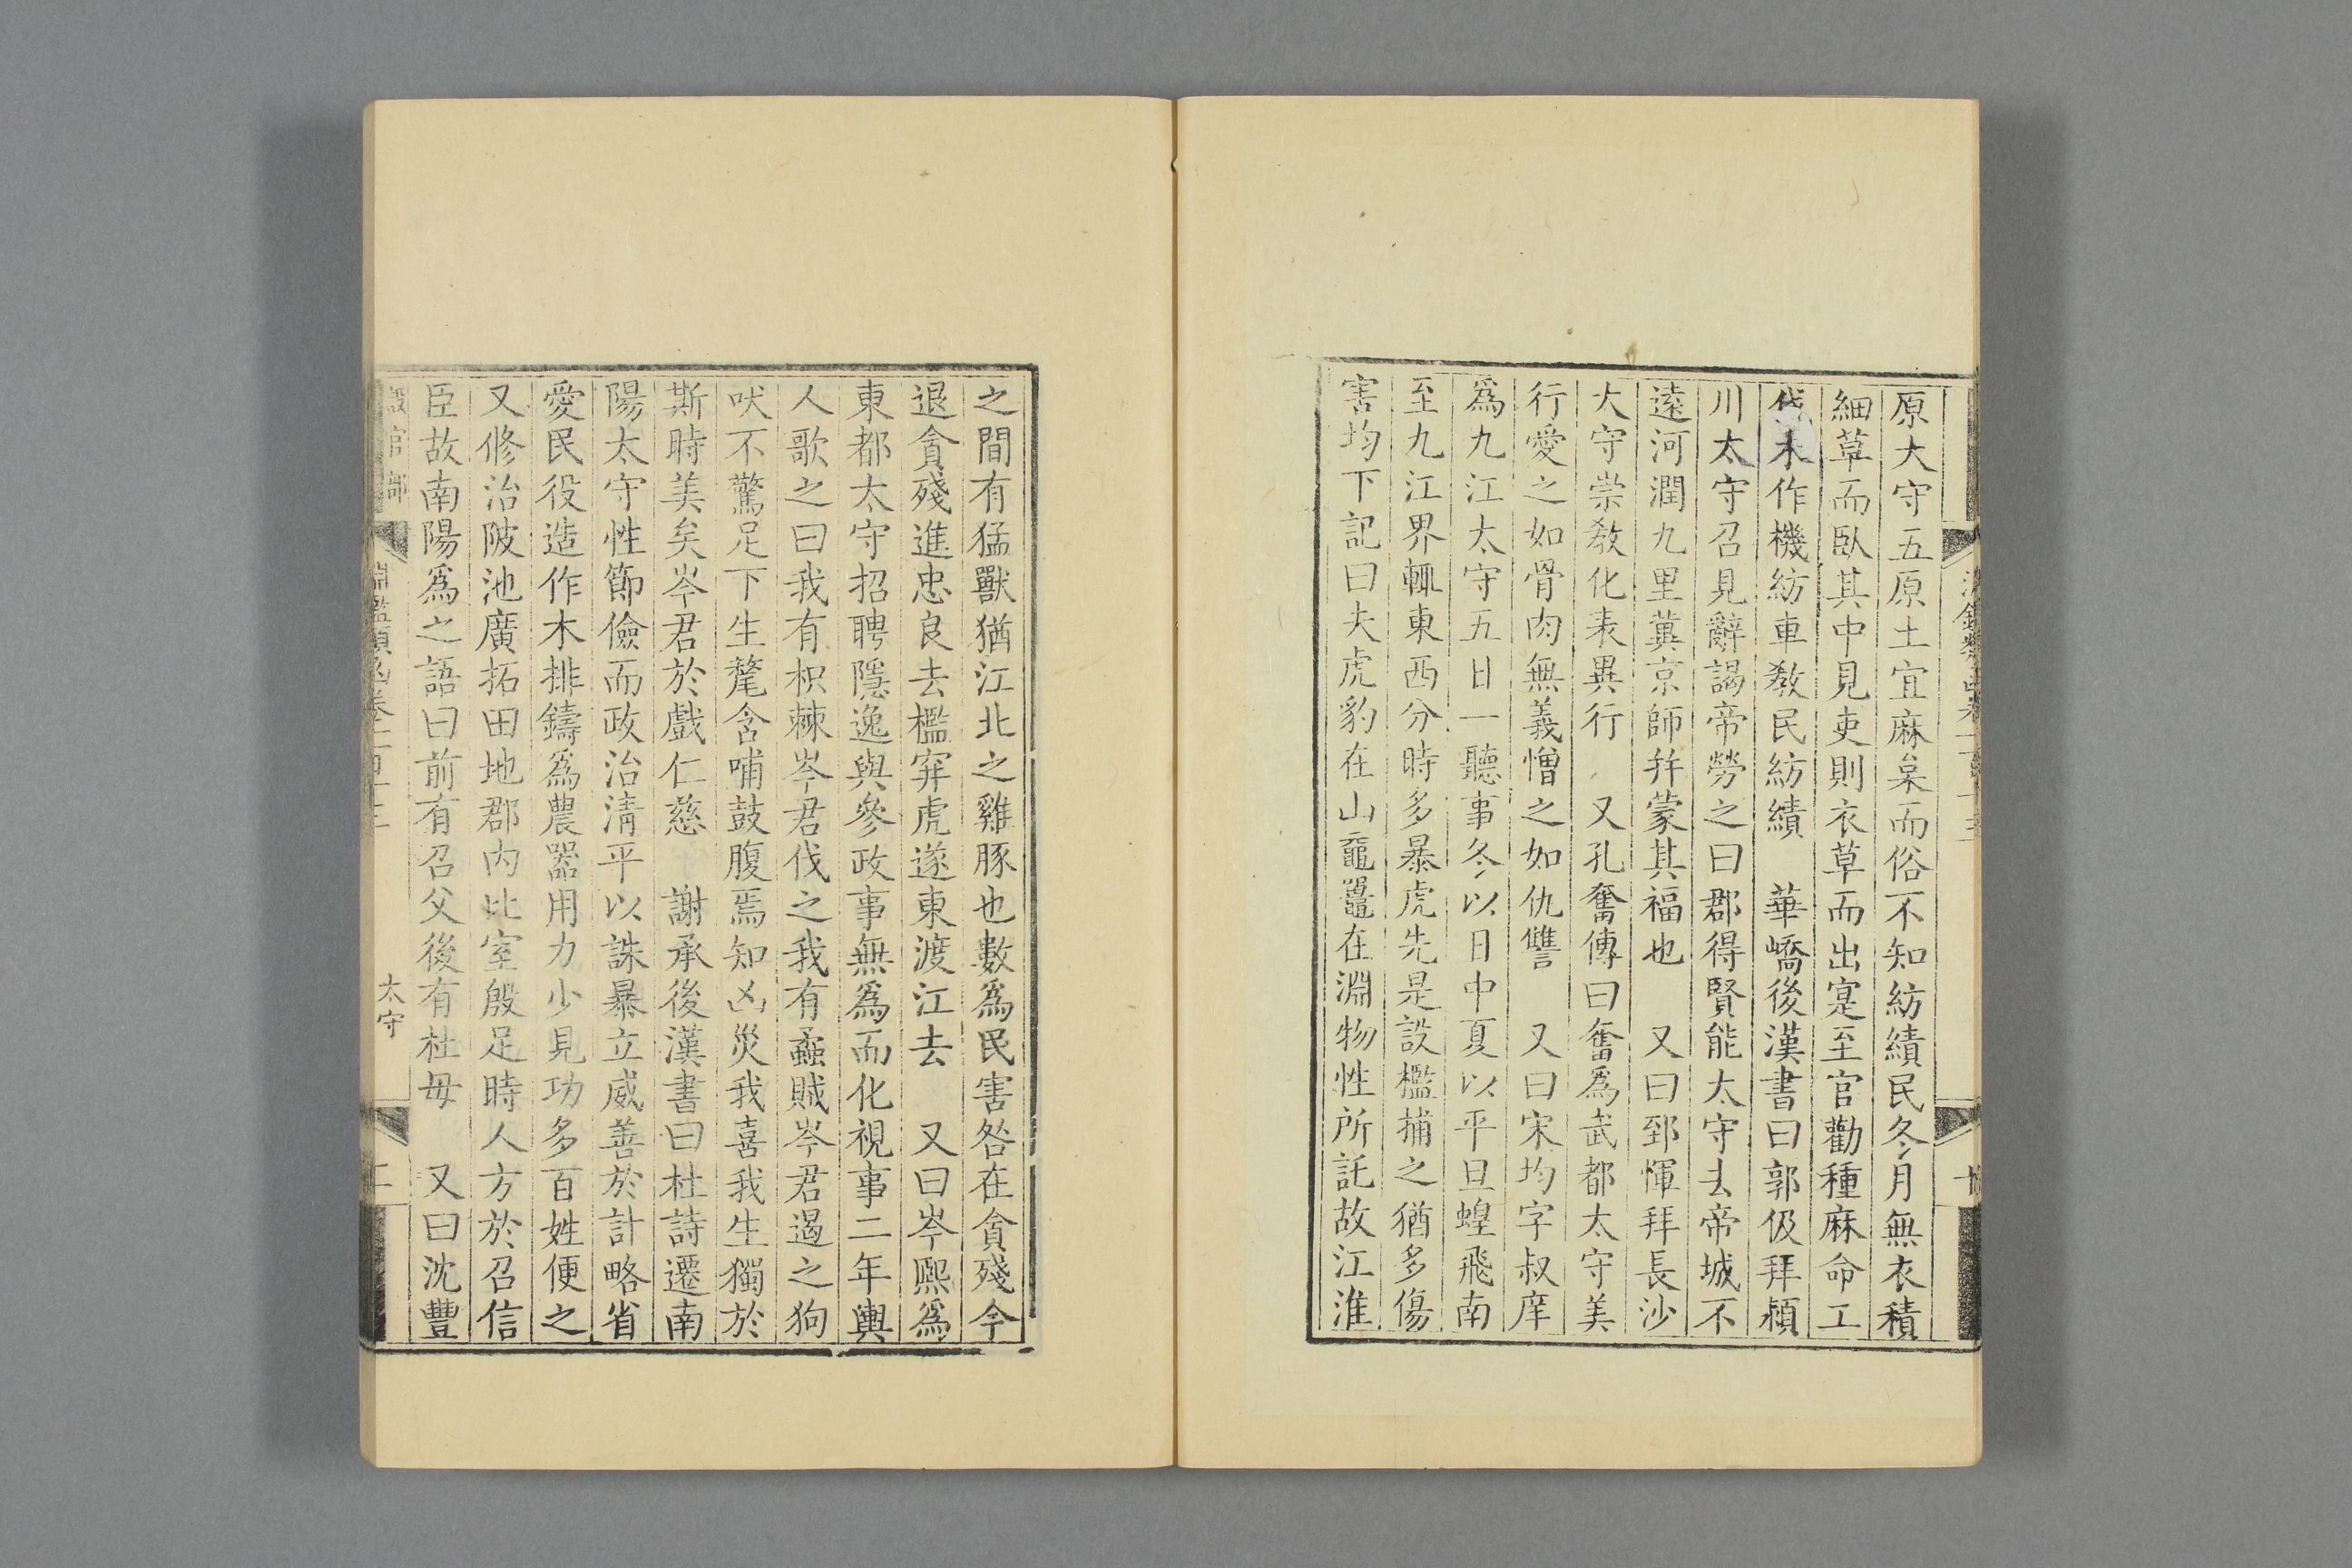 原大守五原土宜麻枲而俗不知紡績民冬月無衣積
細草而臥其中見吏則衣草而出寔至官勸種麻命工
伐木作機紡車敎民紡績　華嶠後漢書曰郭伋拜潁
川太守召見辭謁帝勞之曰郡得賢能太守去帝城不
遠河潤九里冀京師并蒙其福也　又曰郅惲拜長沙
大守崇敎化表異行　又孔奮傳曰奮爲武都太守美
行愛之如骨肉無義憎之如仇讐　又曰宋均字叔庠
爲九江太守五日一聽事冬以日中夏以平旦蝗飛南
至九江界輒東西分時多暴虎先是設檻捕之猶多傷
害均下記曰夫虎豹在山黿鼉在淵物性所託故江淮
之間有猛獸猶江北之雞豚也數爲民害咎在貪殘今
退貪殘進忠良去檻穽虎遂東渡江去　又曰岑熙爲
東都太守招聘隱逸與參政事無爲而化視事二年輿
人歌之曰我有枳棘岑君伐之我有蟊賊岑君遏之狗
吠不驚足下生氂含哺鼓腹焉知凶災我喜我生獨於
斯時美矣岑君於戲仁慈　謝承後漢書曰杜詩遷南
陽太守性節儉而政治淸平以誅暴立威善於計略省
愛民役造作木排鑄爲農器用力少見功多百姓便之
又修治陂池廣拓田地郡內比室殷足時人方於召信
臣故南陽爲之語曰前有召父後有杜母　又曰沈豐
設官部
淵鑑類函卷一百十三
太守